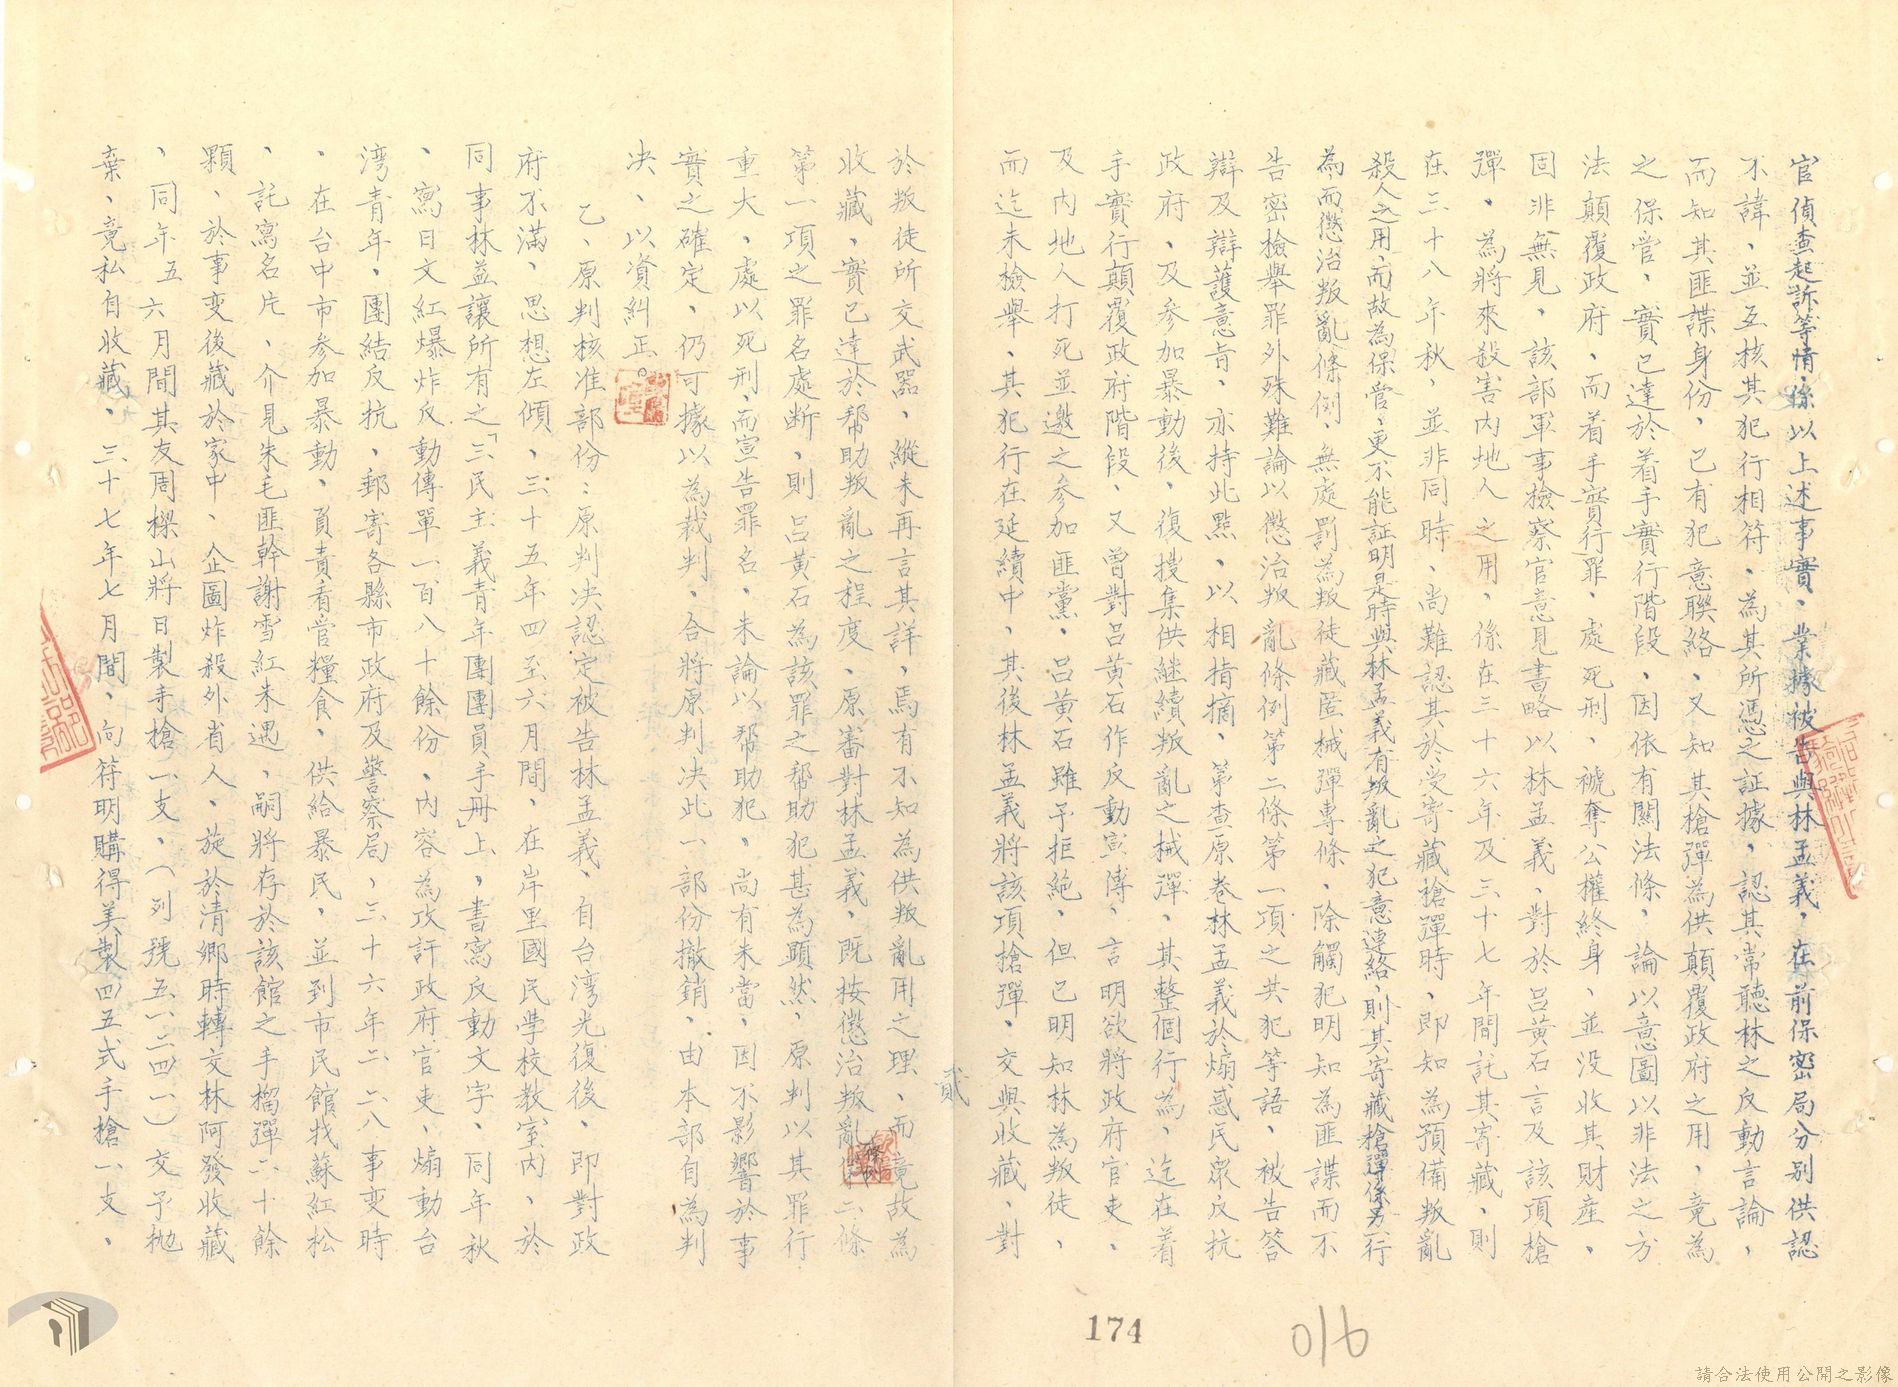 官偵查起訴等情、係以上述事實、業據被告與林孟義、在前保密局分別供認
不諱、並互核其犯行相符、為其所憑之証據、認其常聽林之反動言論、
而知其匪諜身份、已有犯意聯絡、又知其槍彈為供顛覆政府之用、竟為
之保管、實已達於着手實行階段、因依有關法條、論以意圖以非法之方
法顛覆政府、而着手實行罪、處死刑、褫奪公權終身、並没收其財產、
固非無見、該部軍事檢察官意見書略以林孟義、對於呂黃石言及該項槍
彈、為將來殺害内地人之用、係在三十六年及三十七年間託其寄藏、則
在三十八年秋、並非同時、尚難認其於受寄藏槍彈時、即知為預備叛亂
殺人之用、而故為保管、更不能証明是時與林孟義有叛亂之犯意連絡、則其寄藏槍彈係另一行
為而懲治叛亂條例、無處罰為叛徒藏匿械彈專條、除觸犯明知為匪諜而不
告密檢舉罪外殊難論以懲治叛亂條例第二條第一項之共犯等語、被告答
辯及辯護意旨、亦持此點、以相指摘、第查原卷林孟義於煽惑民眾反抗
政府、及参加暴動後、復搜集供継續叛亂之械彈、其整個行為、迄在着
手實行顛覆政府階段、又曾對呂黃石作反動宣傳、言明欲將政府官吏、
及内地人打死並邀之参加匪黨、呂黃石雖予拒絕、但已明知林為叛徒、
而迄未檢舉、其犯行在延續中、其後林孟義將該項槍彈、交與收藏、對
貳
於叛徒所交武器、縱未再言其詳、焉有不知為供叛亂用之理、而竟故為
收藏、實已達於帮助叛亂之程度、原審對林孟義、既按懲治叛亂條例二條
第一項之罪名處断、則呂黃石為該罪之帮助犯甚為顕然、原判以其罪行
重大、處以死刑、而宣告罪名、未論以帮助犯、尚有未當、因不影響於事
實之確定、仍可據以為裁判、合將原判决此一部份撤銷、由本部自為判
决、以資糾正。
乙、原判核准部份：原判决認定被告林孟義、自台湾光復後、即對政
府不滿、思想左傾、三十五年四至六月間、在岸里國民学校教室内、於
同事林益讓所有之「三民主義青年團團員手冊」上、書寫反動文字、同年秋
、寫日文紅爆炸反動傳單一百八十餘份、内容為攻訐政府官吏、煽動台
湾青年、團結反抗、郵寄各縣市政府及警察局、三十六年二、二八事变時
、在台中市参加暴動、負責看管糧食、供給暴民、並到市民館找蘇紅松
、託寫名片、介見朱毛匪幹謝雪紅未遇、嗣將存於該館之手榴彈二十餘
顆、於事变後藏於家中、企圖炸殺外省人、旋於清鄉時轉交林阿發收藏
、同年五六月間其友周樑山將日製手槍一支、（列號五一二四一）交予抛
棄、竟私自收藏、三十七年七月間、向符明購得美製四五式手槍一支、
174
016
請合法使用公開之影像